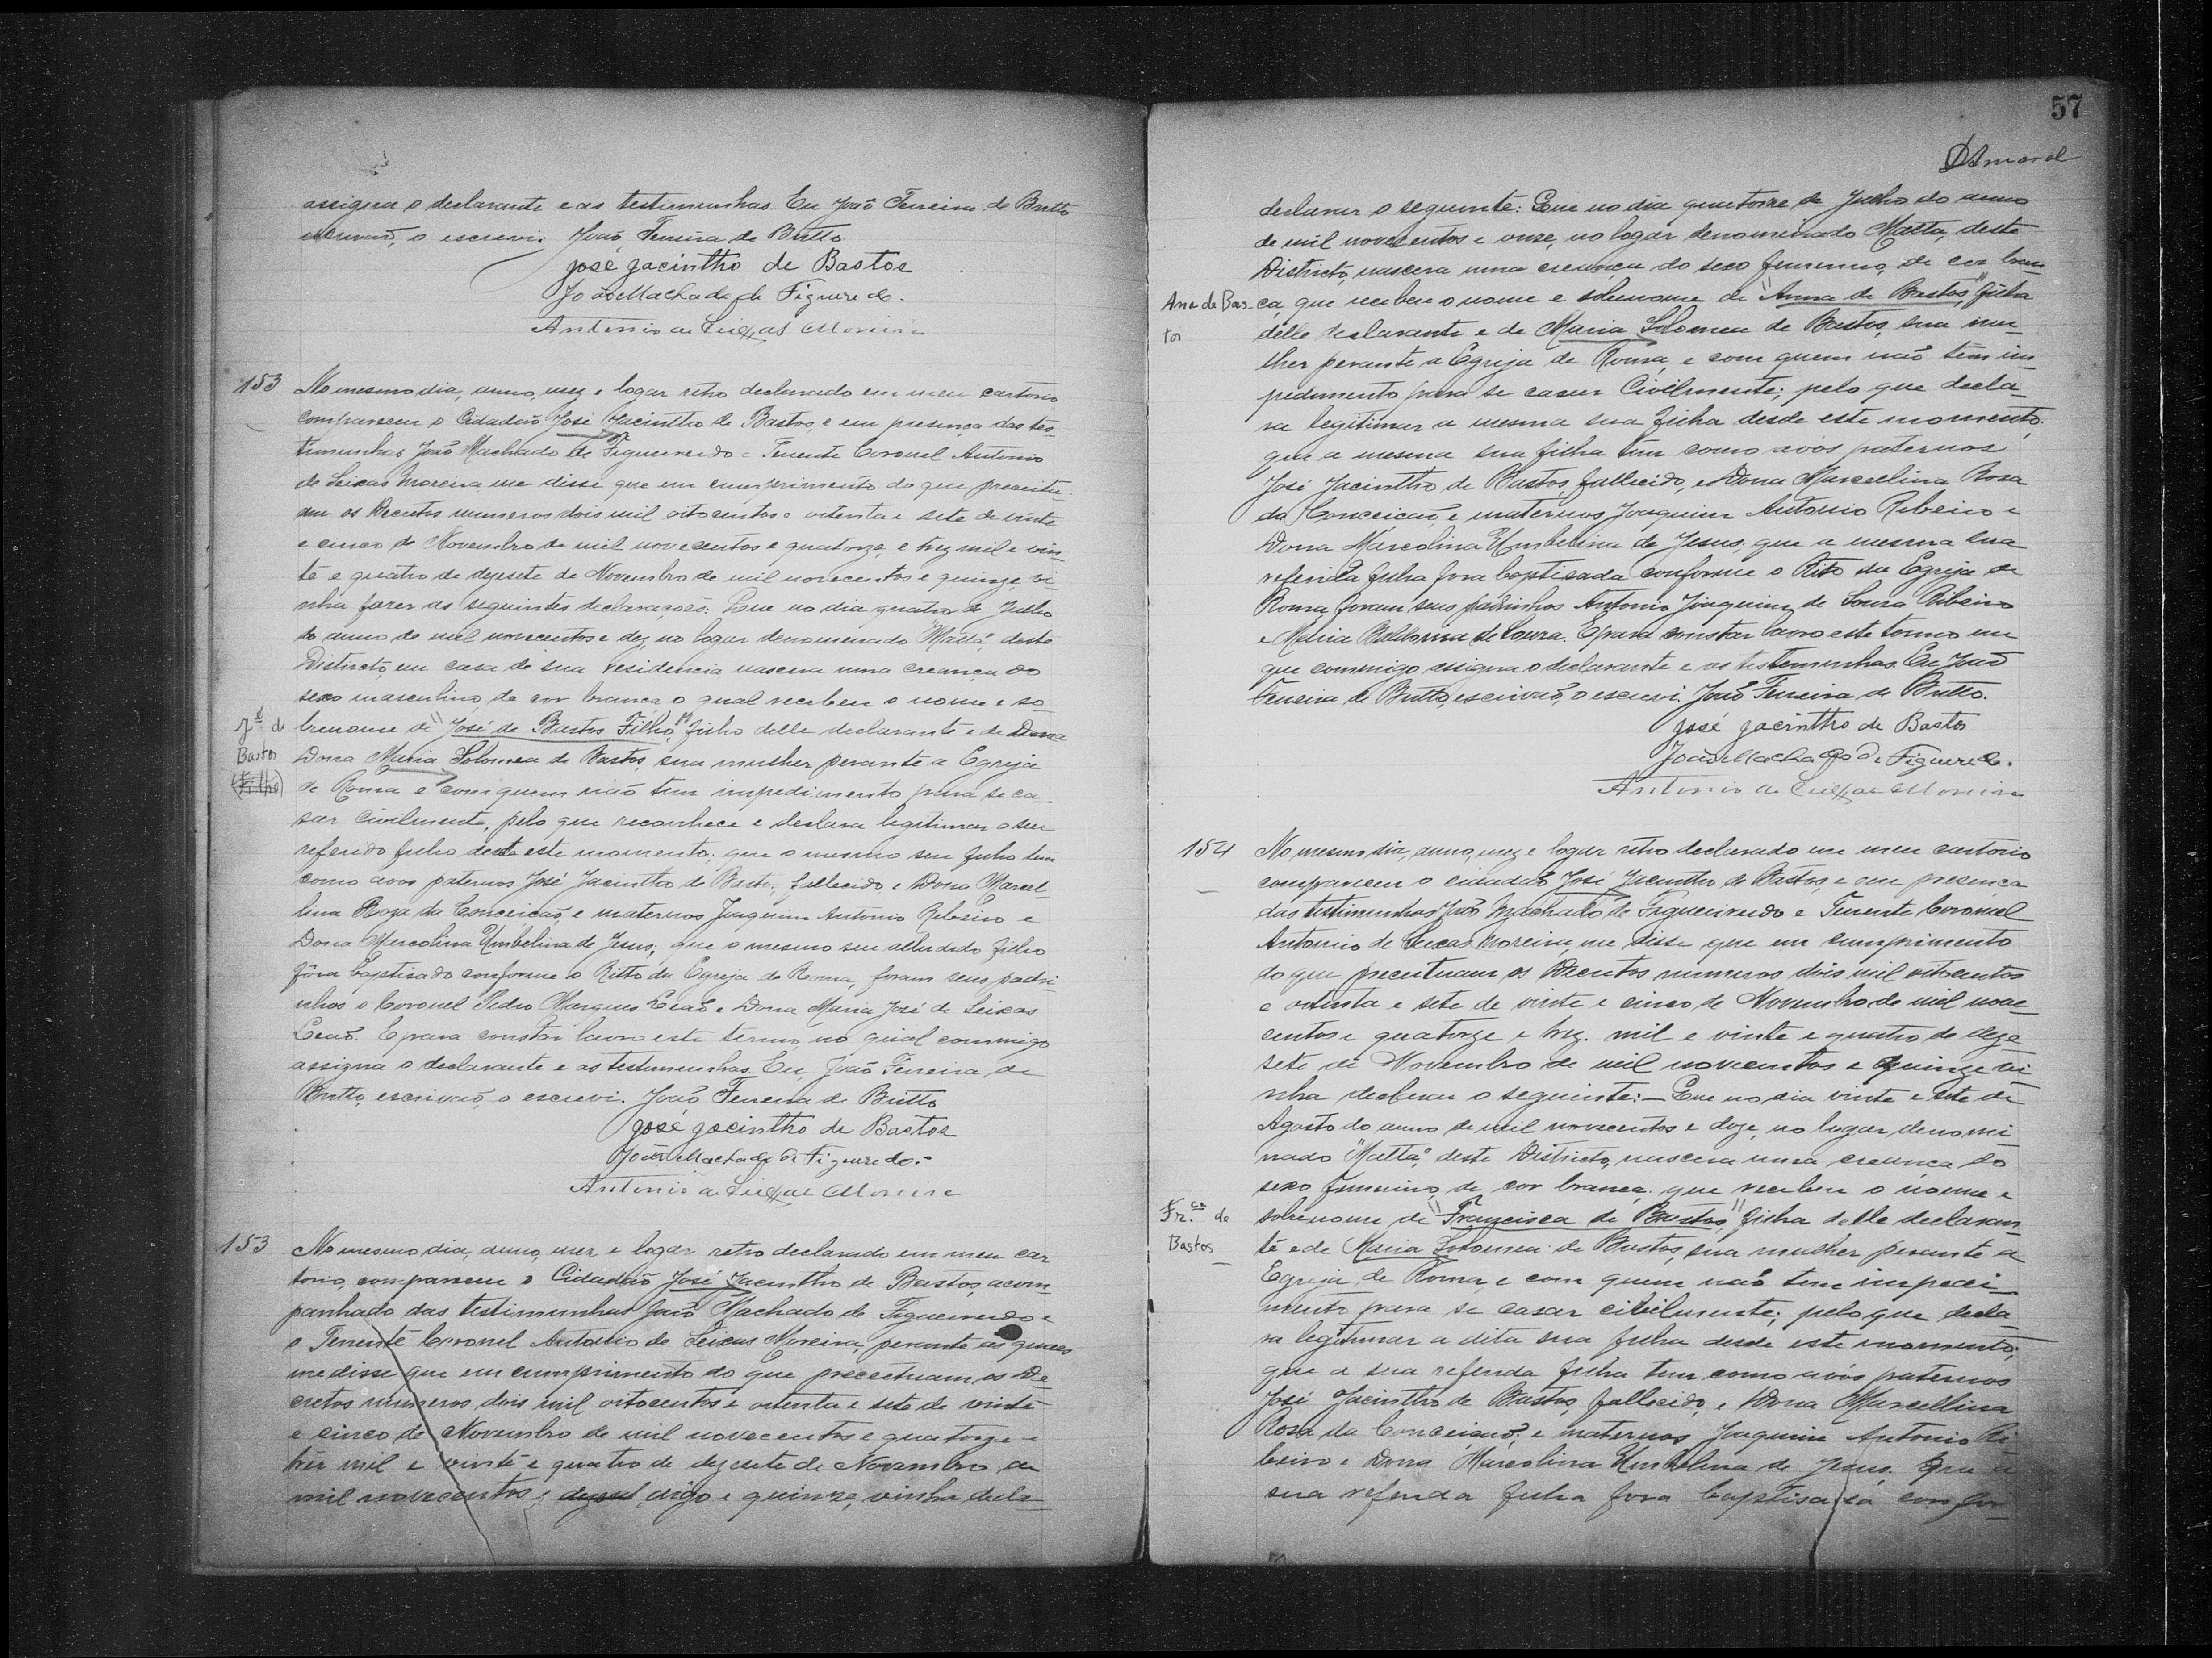 assigna o declarante e as testimunhas. Eu João Ferreira de Britto
escrivão, o escrevi. João Ferreira de Britto
José Jacintho de Bastos
João Machado de Figueredo.
Antonio de Seixas Moreira
153 No mesmo dia, anno, mez e logar retro declarado em meu cartorio
compareceu o Cidadão José Jacintho de Bastos, e em presença das tes-
timunhas João Machado de Figueiredo e Tenente Coronel Antonio
de Seixas Moreira, me disse que em cumprimento do que preceitu-
am os Decretos numeros dois mil oitocentos e oitenta e sete de vinte
e cinco de Novembro de mil novecentos e quatorze, e trez mil e vin-
te e quatro de dezesete de Novembro de mil novecentos e quinze vi-
nha fazer as seguintes declarações: Que no dia quatro de Julho
do anno de mil novecentos e dez, no logar denominado "Matta", deste
Districto, em casa de sua residencia nascera uma creança do
sexo masculino, de côr branca, o qual recebeu o nome e so-
J.é de brenome de "José de Bastos Filho," filho delle declarante e de Dona
Bastos Dona Maria Solomea de Bastos, sua mulher perante a Egreja
(Filho) de Roma e com quem não tem impedimento para se ca-
sar Civilmente, pelo que reconhece e declara legitimar o seu
referido filho desde este momento; que o mesmo seu filho tem
como avos paternos José Jacintho de Bastos, fallecido e Dona Marcel-
lina Roza da Conceicão, e maternos Joaquim Antonio Ribeiro e
Dona Mercolina Umbelina de Jesus; que o mesmo seu alludido filho
fôra baptisado conforme o Ritto da Egreja de Roma, foram seus padri-
nhos o Coronel Pedro Marques Leão e Dona Maria José de Seixas
Leão. E para constar lavro este termo, no qual commigo
assigna o declarante e as testimunhas. Eu, João Ferreira de
Britto, escrivão, o escrevi. João Ferreira de Britto
José Jacintho de Bastos
João Machado de Figueredo.
Antonio de Seixas Moreira
153 No mesmo dia, anno, mez e logar retro declarado em meu car
torio, compareceu o Cidadão José Jacintho de Bastos, acom-
panhado das testimunhas João Machado de Figueiredo e
o Tenente Coronel Antonio de Seixas Moreira, perante as quaes
me disse que em cumprimento do que preceituam os De-
cretos numeros dois mil oitocentos e oitenta e sete de vinte
e cinco de Novembro de mil novecentos e quatorze e
trez mil e vinte e quatro de dezesete de Novembro de
mil novecentos e digo e quinze, vinha decla-
57
Amaral
declarar o seguinte: Que no dia quatorze de Julho do anno
de mil novecentos e onze, no logar denominado Matta, deste
Districto, nascera uma creança do sexo femenino, de cor bran-
Ana de Bas- ca, que recebeu o nome e sobrenome de "Anna de Bastos," filha
tos delle declarante e de Maria Solomea de Bastos, sua mu-
lher perante a Egreja de Roma, e com quem não tem im-
pedimento para se casar Civilmente; pelo que decla-
ra legitimar a mesma sua filha desde este momento;
que a mesma sua filha tem como avós paternos
José Jacintho de Bastos, fallecido, e Dona Marcellina Rosa
da Conceicão, e maternos Joaquim Antonio Ribeiro e
Dona Marcolina Umbelina de Jesus, que a mesma sua
referida filha fora baptisada conforme o Rito da Egreja de
Roma, foram seus padrinhos Antonio Joaquim de Souza Ribeiro
e Maria de Souza. E para constar lavro este termo em
que commigo assigna o declarante e as testemunhas. Eu João
Ferreira de Britto, escrivão, o escrevi. João Ferreira de Britto.
José Jacintho de Bastos
João Machado de Figueredo.
Antonio de Seixas Moreira
154 No mesmo dia, anno, mez e logar retro declarado em meu cartorio
compareceu o cidadão José Jacintho de Bastos, e em presença
das testimunhas João Machado de Figueiredo e Tenente Coronel
Antonio de Seixas Moreira, me disse que em cumprimento
do que preceituam os Decretos numeros dois mil oitocentos
e oitenta e sete de vinte e cinco de Novembro de mil nove-
centos e quatorze e trez mil e vinte e quatro de deze
sete de Novembro de mil novecentos e quinze vi
nha declarar o seguinte:- Que no dia vinte e sete de
Agosto do anno de mil novecentos e doze, no logar denomi
nado "Matta", deste Districto, nascera uma creança do
sexo femenino, de cor branca, que recebeu o nome e
Fr.ca de sobrenome de "Francisca de Bastos," filha delle declaran-
Bastos te e de Maria Solomea de Bastos, sua mulher perante a
Egreja de Roma, e com quem não tem impedi-
mento para se casar civilmente; pelo que decla
ra legitimar a dita sua filha desde este momento;
que a sua referida filha tem como avós paternos
José Jacintho de Bastos, fallecido, e Dona Marcellina
Rosa da Conceicão; e maternos Joaquim Antonio Ri
beiro e Dona Marcolina Umbelina de Jesus. Que a
sua referida filha fora baptisada confor-